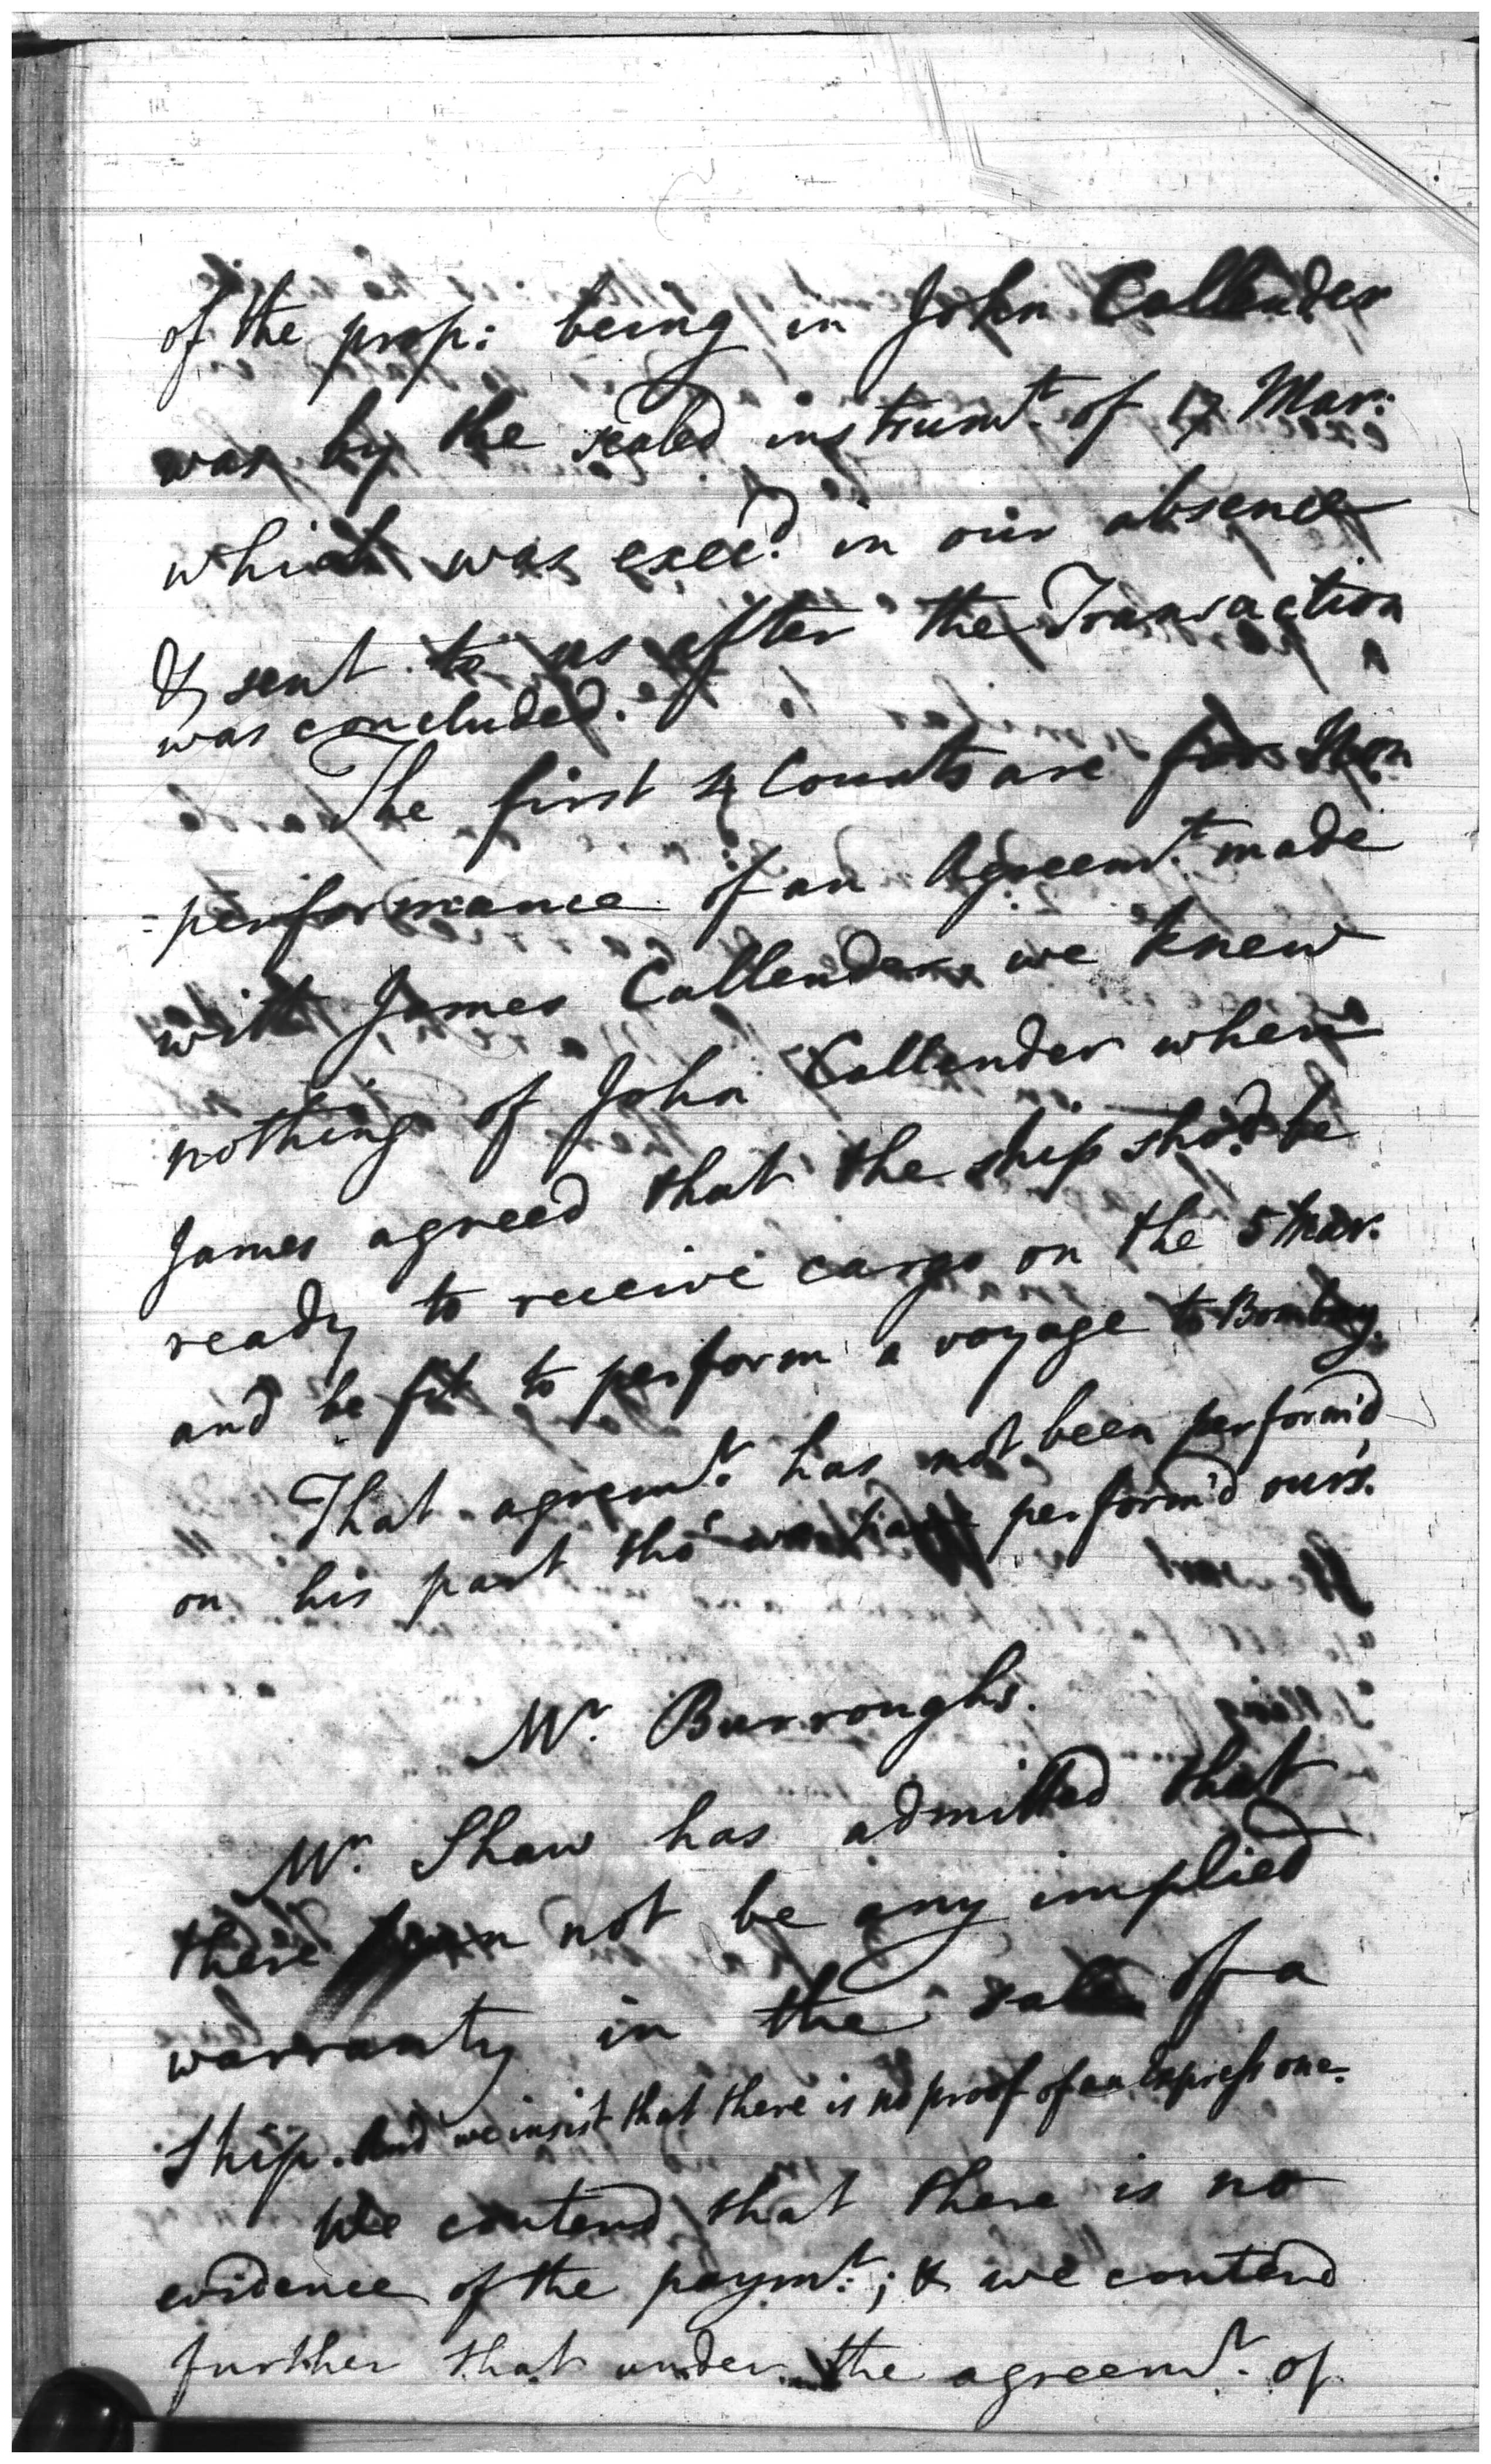 of the prop: being in John Callender
was by the sealed instrumt. of 17 Mar:
which was exec'd in our absence
& sent to us after the Transaction
was concluded.
The first 4 Counts are for Non
=performance of an Agreemt. made
with James Callender we knew
nothing of John Callender when
James agreed that the ship sho'd be
ready to receive cargo on the 5 Mar.
and be fit to perform a voyage to Bombay.
That agreemt. has not been perform'd
on his part tho' we have perform'd our's.
Mr. Burroughs.
Mr. Shaw has admitted that
there can not be any implied
warranty in the sale of a
Ship. And we insist that there is no proof of an express one.
We contend that there is no
evidence of the paymt.; & we contend
further that under the agreemt. of